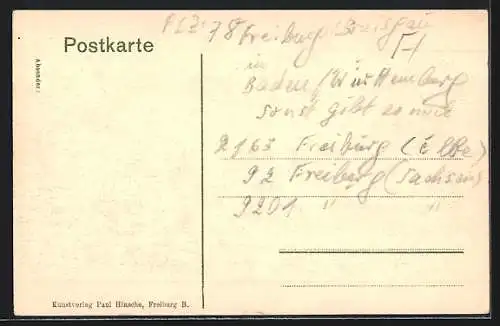 Postkarte
Absender:
PLZ: 78 Freiburg Breisgau
in
Baden/Württemberg
sonst gibt es noch
2163 Freiburg (Elbe)
92 Freiberg (Sachsen)
9201 " "
Kunstverlag Paul Hinsche, Freiburg B.